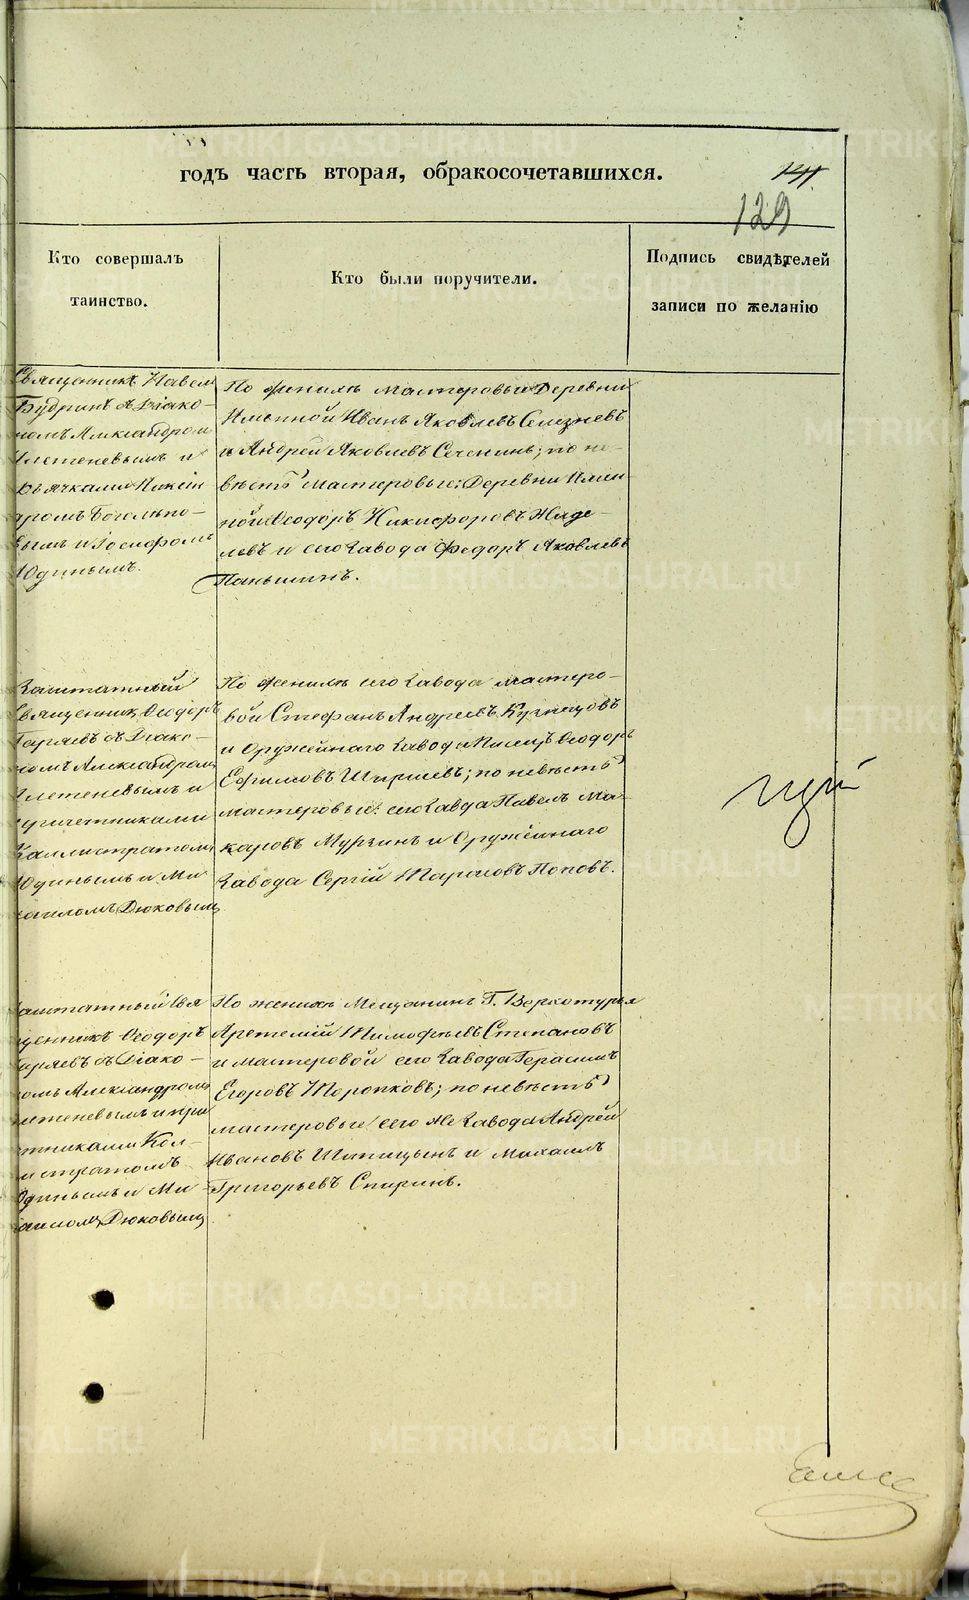 годъ часть вторая, обракосочетавшихся.
129
Кто совершалъ
таинство.
Кто были поручители.
Подпись свидѣтелей
записи по желанію
Священникъ Павелъ
Будринъ съ Діако-
номъ Александромъ
Плетеневымъ и
ромъ
вымъ и Іосифомъ
Юдинымъ.
По женихѣ мастеровые: Деревни
Именной Иванъ Яковлевъ Селезневъ
и Андрей Яковлевъ Сеченинъ; по не-
вѣстѣ мастеровые: Деревни Имен-
ной Ѳеодоръ Никифоровъ
и сего завода Федоръ Яковлевъ
Паньшинъ.
Заштатный
Священникъ Ѳеодоръ
съ Діако-
номъ Александромъ
Плетеневымъ и
причетниками
Каллистратомъ
Юдинымъ и Ми-
хаиломъ Дюковымъ
По женихѣ сего завода мастеро-
вой Стефанъ Андреевъ Кузнецовъ
и Оружейнаго завода Ѳеодоръ
Ефимовъ Ширяевъ; по невѣстѣ
мастеровые: сего завода Павелъ Ма-
каровъ Мурзинъ и Оружейнаго
завода Сергій Тарасовъ Поповъ.
Заштатный Свя
щенникъ Ѳеодоръ
съ Діако-
номъ Александромъ
Плетеневымъ и при
четниками Кал-
листратомъ
Юдинымъ и Ми-
хаиломъ Дюковымъ
По женихѣ Мещанинъ Г. Верхотурья
Артемій Тимофѣевъ Степановъ
и мастеровой сего завода Герасимъ
Егоровъ Торопковъ; по невѣстѣ
мастеровые сего же завода Андрей
Ивановъ Шипицынъ и Михаилъ
Григорьевъ Спиринъ.
METRIKI.GASO-URAL.RU